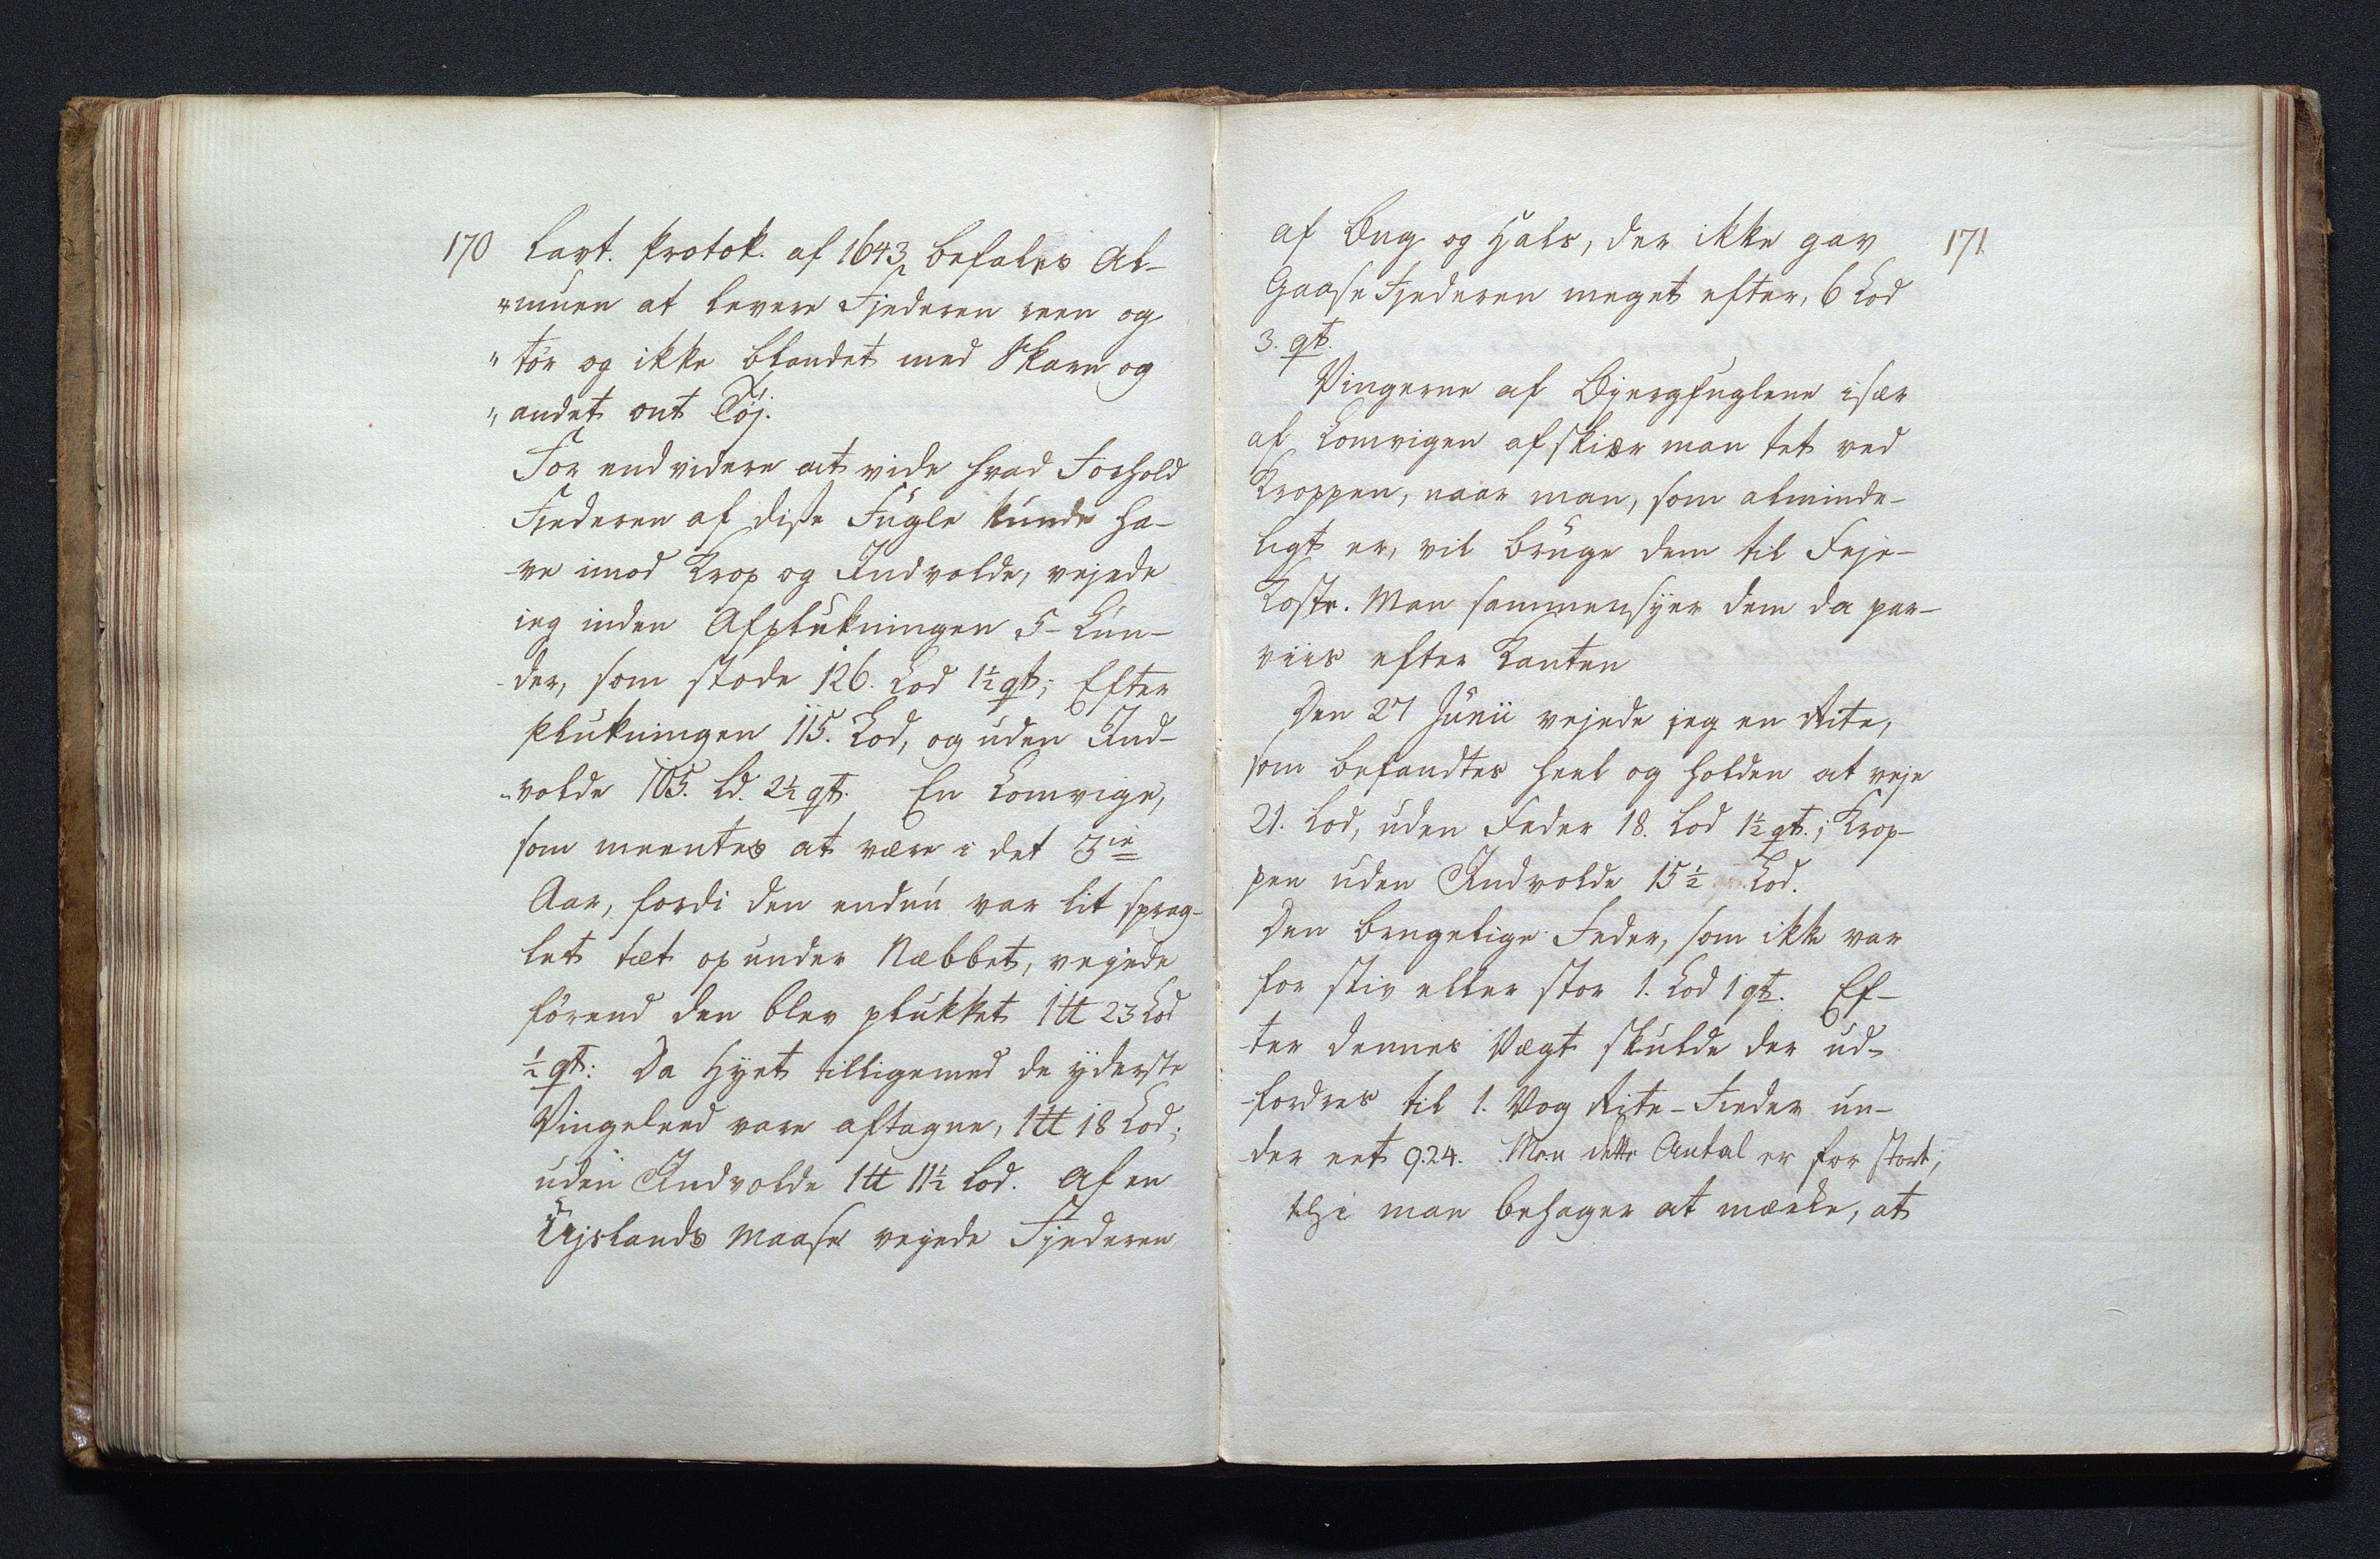 170
Lavt. Protok. af 1643 befales Al-
"muen at levere Fjederen reen og
" tör og ikke blandet med Skarn og
" andet ont Töj.
For end videre at vide hvad Forhold
Fiederen af disse Fugle kunde ha-
ve imod Krop og Indvolde, vejede
ieg inden Afplukningen 5 Lun-
der, som stode 126. Lod 1½ qt; Efter
Plukningen 115. Lod, og uden Ind-
volde 105. Ld. 2½ qt. En Lomvige,
som meentes at være i det 3ie
Aar, fordi den endnu var lit sprag-
let tæt op under Næbbet, vejede
förend den blev plukket 1 ℔ 23 Lod
½ qt: Da Hyet tilligemed de yderste
Vingeleed vare aftagne, 1 ℔ 18 Lod;
uden Indvolde 1 ℔ 11½ Lod. Af en
Ajslands Maase vejede Fjederen
171
af Bug og Hals, der ikke gav
Gaase Fjederen meget efter, 6 Lod
3. qt.
Vingerne af Bjergfuglene især
af Lomvigen afskiær man tet ved
Kroppen, naar man, som alminde-
ligt er, vil bruge dem til Feje-
Koste. Man sammensyer dem da par-
viis efter Kanten
Den 27 Junii vejede jeg en Rite,
som befandtes heel og holden at veje
21. Lod, uden Feder 18. Lod 1½ qt.; Krop-
pen uden Indvolde 15½ Lod.
Den brugelige Feder, som ikke var
for stiv eller stor 1. Lod 1 qt. Ef-
ter dennes Vægt skulde der ud-
fordres til 1. Vog Rite-Fieder un-
der eet 924. Men dette Antal er for stort;
thi man behager at mærke, at